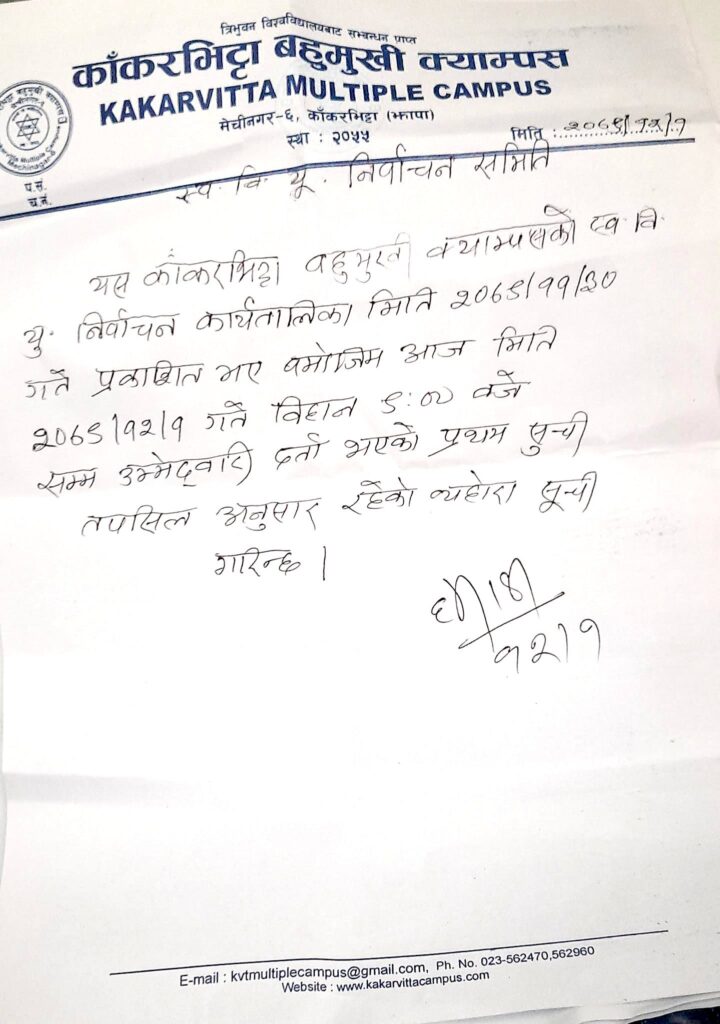 त्रिभुवन विश्वविद्यालयबाट सम्बन्धन प्राप्त
काँकरभिट्टा बहुमुखी क्याम्पस
KAKARVITTA MULTIPLE CAMPUS
मेचीनगर-६, काँकरभिट्टा (झापा)
स्था : २०५५
मिति : २०७९/१२/१
प.सं.
च.नं.
स्व. वि. यू. निर्वाचन समिति
यस काँकरभिट्टा बहुमुखी क्याम्पसको स्व. वि.
यु. निर्वाचन कार्यतालिका मिति २०७९/११/३०
गते प्रकाशित भए वमोजिम आज मिति
२०७९/१२/१ गते विहान ९:०० वजे
सम्म उम्मेद्वारी दर्ता भएको प्रथम सुची
तपसिल अनुसार रहेको व्यहोरा सूची
गरिन्छ ।
१२/१
E-mail : kvtmultiplecampus@gmail.com, Ph. No. 023-562470,562960
Website : www.kakarvittacampus.com